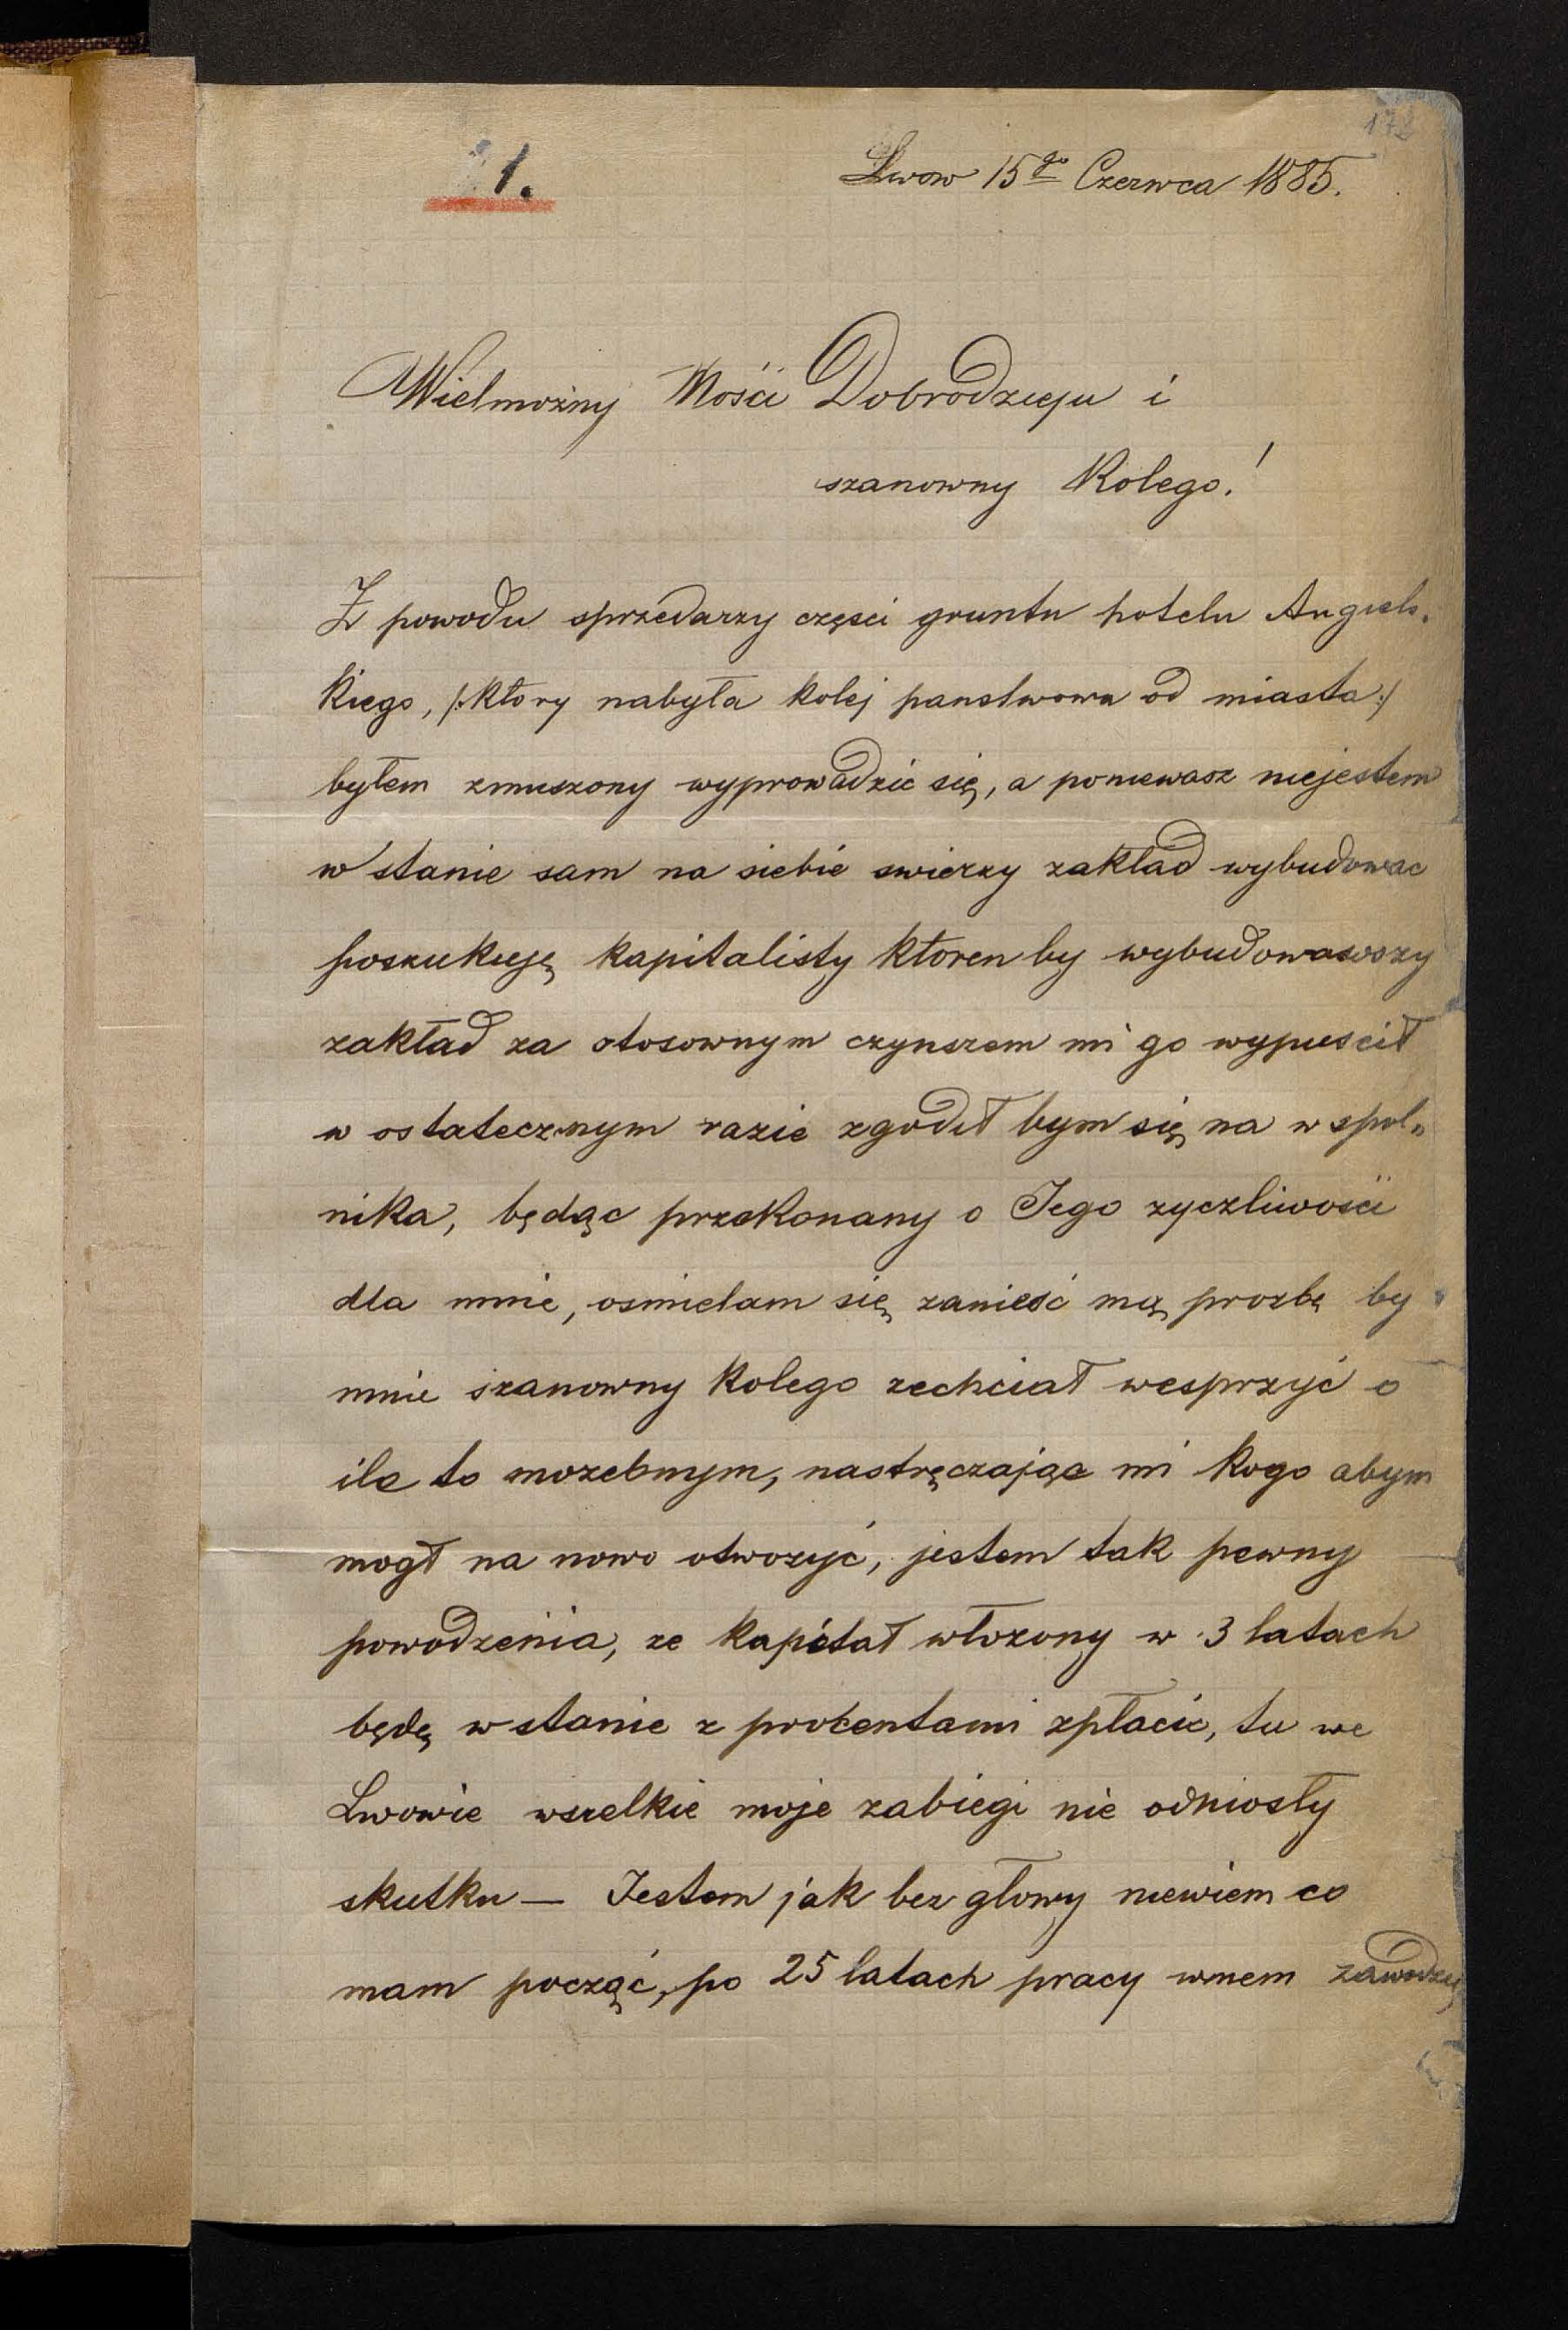 172
1.
Lwow 15go Czerwca 1885.
Wielmożny Mości Dobrodzieju i
szanowny Kolego!
Z powodu sprzedarzy części gruntu hotelu Angiels„
kiego, /:ktory nabyła kolej panstwowa od miasta:/
byłem zmuszony wyprowadzić się, a poniewasz niejestem
w stanie sam na siebie swierzy zakład wybudowac
poszukuję kapitalisty ktoren by wybudowawszy
zakład za stosownym czynszem mi go wypuscił
w ostatecznym razie zgodił bym się na wspol„
nika, będąc przekonany o Jego zyczliwości
dla mnie, osmielam się zanieść mą prozbę by
mnie szanowny kolego zechciał wesprzyć o
ile to mozebnym, nastręczając mi kogo abym
mogł na nowo otworzyć, jestem tak pewny
powodzenia, ze kapitał włozony w 3 latach
będę w stanie z procentami zpłacic, tu we
Lwowie wszelkie moje zabiegi nie odniosły
skutku — Jestem jak bez głowy niewiem co
mam począć, po 25 latach pracy wmem zawodzie